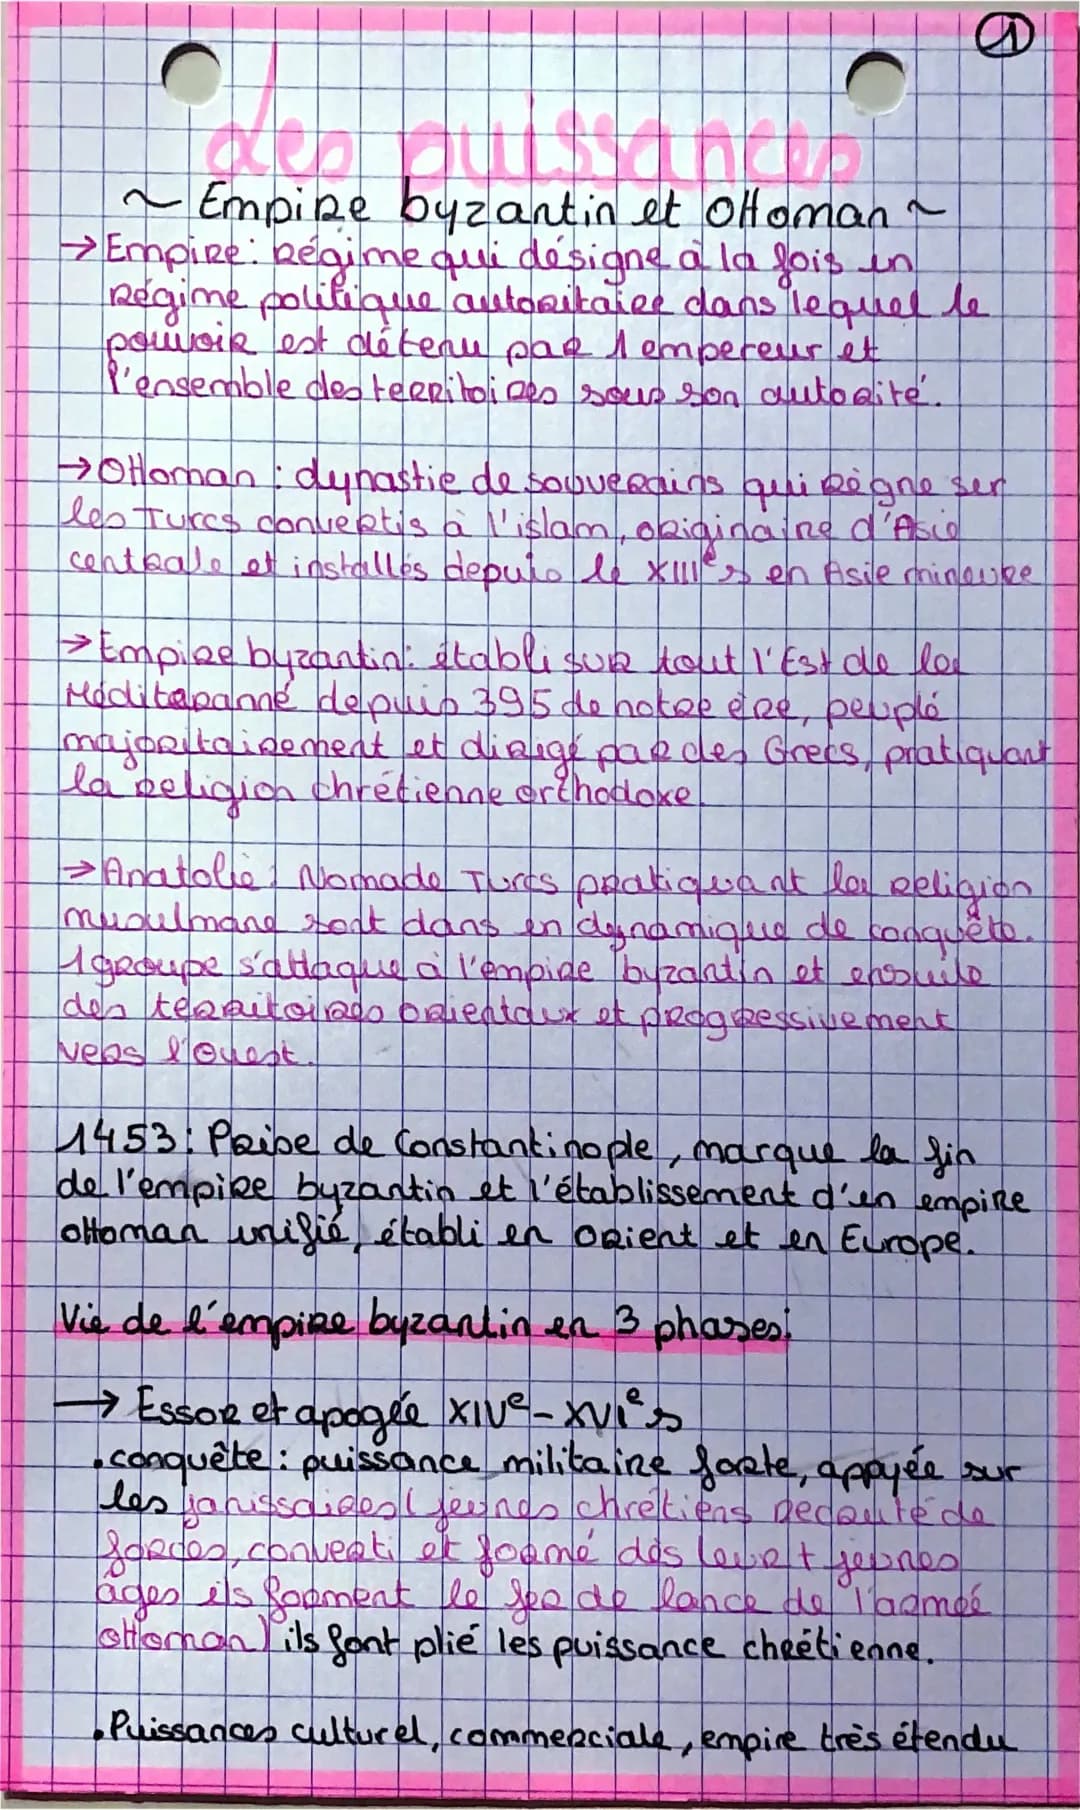 1
des puissances
~ Empire byzantin et Ottoman ~
→ Empire : Régime qui désigne à la fois un
Régime politique autoritaire dans lequel le
pouvoir est détenu par 1 empereur et
l'ensemble des territoires sous son autorité.
→ Ottoman : dynastie de souverains qui règne sur
les Turcs convertis à l'islam, originaire d'Asie
centrale et installés depuis le XIIIe s en Asie mineure
→ Empire byzantin : établi sur tout l'Est de la
Méditeranné depuis 395 de notre ère, peuplé
majoritairement et dirigé par des Grecs, pratiquant
la religion chrétienne orthodoxe.
→ Anatolie : Nomade Turcs pratiquant la religion
musulmane sont dans un dynamique de conquête.
1 groupe s'attaque à l'empire byzantin et ensuite
des territoires orientaux et progressivement
vers l'Ouest.
1453 : Prise de Constantinople, marque la fin
de l'empire byzantin et l'établissement d'un empire
ottoman unifié, établi en orient et en Europe.
Vie de l'empire byzantin en 3 phases :
→ Essor et apogée XIVe - XVIe s
. conquête : puissance militaire forte, appuyée sur
les janissaires (jeunes chrétiens recruté de
forces, converti et formé dès leur + jeunes
âges ils forment le fer de lance de l'armée
ottoman) ils font plié les puissance chrétienne.
. Puissances culturel, commerciale, empire très étendu